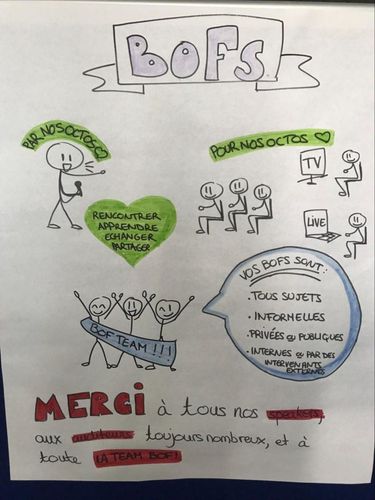 BOFS
PAR NOS OCTOS
POUR NOS OCTOS
TV
LIVE
RENCONTRER
APPRENDRE
ECHANGER
PARTAGER
VOS BOFS SONT:
• TOUS SUJETS
• INFORMELLES
• PRIVÉES & PUBLIQUES
• INTERNES & PAR DES
INTERVENANTS
EXTERNES
BOF TEAM !!!
MERCI à tous nos speakers,
aux auditeurs toujours nombreux, et à
toute LA TEAM BOF!